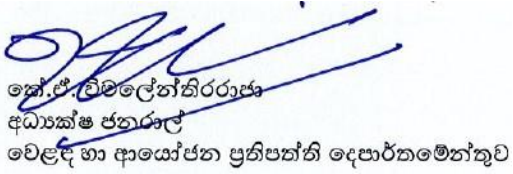 කේ.ඒ. විමලේන්තිරරාජා
අධ්‍යක්ෂ ජනරාල්
වෙළඳ හා ආයෝජන ප්‍රතිපත්ති දෙපාර්තමේන්තුව